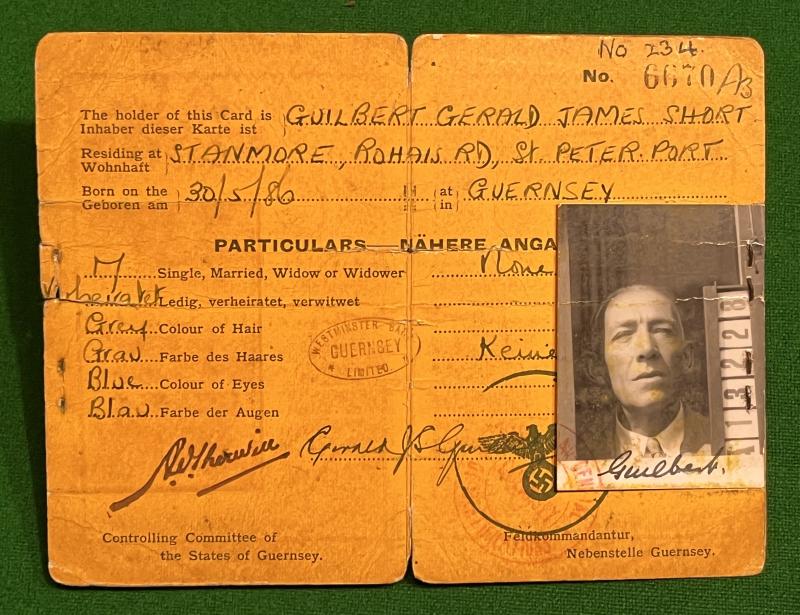 No 234.
No. 6670 A3
The holder of this Card is GUILBERT GERALD JAMES SHORT
Inhaber dieser Karte ist
Residing at STANMORE, ROHAIS RD, St. PETER-PORT
Wohnhaft
Born on the 30/5/86 at GUERNSEY
Geboren am in
PARTICULARS—NÄHERE ANGA
M Single, Married, Widow or Widower None
Verheiratet Ledig, verheiratet, verwitwet
Grey Colour of Hair
Grau Farbe des Haares Keine
Blue Colour of Eyes
Blau Farbe der Augen
WESTMINSTER BANK
GUERNSEY
LIMITED
113228
Guilbert.
Controlling Committee of
the States of Guernsey.
Feldkommandantur,
Nebenstelle Guernsey.